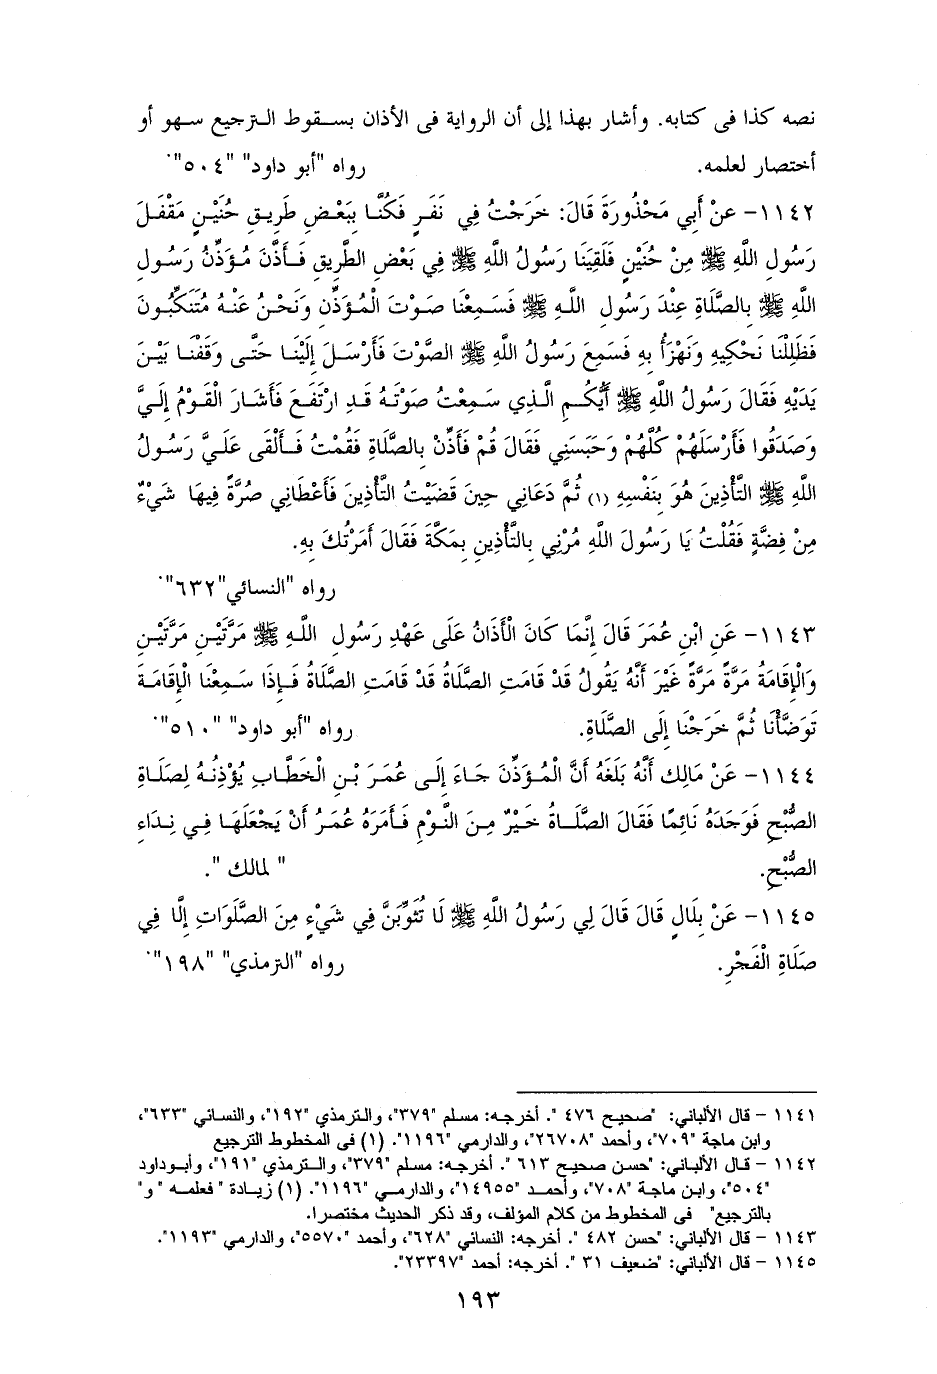 نصه كذا فى كتابه. وأشار بهذا إلى أن الرواية فى الأذان بسقوط الترجيع سهو أو
أختصار لعلمه. رواه "أبو داود" "٥٠٤".
١١٤٢– عنْ أَبِي مَحْذُورَةَ قَالَ: خَرَجْتُ فِي نَفَرٍ فَكُنَّا بِبَعْضِ طَرِيقِ حُنَيْنٍ مَقْفَلَ
رَسُولِ اللَّهِ ﷺ مِنْ حُنَيْنٍ فَلَقِيَنَا رَسُولُ اللَّهِ ﷺ فِي بَعْضِ الطَّرِيقِ فَأَذَّنَ مُؤَذِّنُ رَسُولِ
اللَّهِ ﷺ بِالصَّلَاةِ عِنْدَ رَسُولِ اللَّهِ ﷺ فَسَمِعْنَا صَوْتَ الْمُؤَذِّنِ وَنَحْنُ عَنْهُ مُتَنَكِّبُونَ
فَظَلِلْنَا نَحْكِيهِ وَنَهْزَأُ بِهِ فَسَمِعَ رَسُولُ اللَّهِ ﷺ الصَّوْتَ فَأَرْسَلَ إِلَيْنَا حَتَّى وَقَفْنَا بَيْنَ
يَدَيْهِ فَقَالَ رَسُولُ اللَّهِ ﷺ أَيُّكُمِ الَّذِي سَمِعْتُ صَوْتَهُ قَدِ ارْتَفَعَ فَأَشَارَ الْقَوْمُ إِلَيَّ
وَصَدَقُوا فَأَرْسَلَهُمْ كُلَّهُمْ وَحَبَسَنِي فَقَالَ قُمْ فَأَذِّنْ بِالصَّلَاةِ فَقُمْتُ فَأَلْقَى عَلَيَّ رَسُولُ
اللَّهِ ﷺ التَّأْذِينَ هُوَ بِنَفْسِهِ (١) ثُمَّ دَعَانِي حِينَ قَضَيْتُ التَّأْذِينَ فَأَعْطَانِي صُرَّةً فِيهَا شَيْءٌ
مِنْ فِضَّةٍ فَقُلْتُ يَا رَسُولَ اللَّهِ مُرْنِي بِالتَّأْذِينِ بِمَكَّةَ فَقَالَ أَمَرْتُكَ بِهِ.
رواه "النسائي"٦٣٢".
١١٤٣– عَنِ ابْنِ عُمَرَ قَالَ إِنَّمَا كَانَ الْأَذَانُ عَلَى عَهْدِ رَسُولِ اللَّهِ ﷺ مَرَّتَيْنِ مَرَّتَيْنِ
وَالْإِقَامَةُ مَرَّةً مَرَّةً غَيْرَ أَنَّهُ يَقُولُ قَدْ قَامَتِ الصَّلَاةُ قَدْ قَامَتِ الصَّلَاةُ فَإِذَا سَمِعْنَا الْإِقَامَةَ
تَوَضَّأْنَا ثُمَّ خَرَجْنَا إِلَى الصَّلَاةِ. رواه "أبو داود" "٥١٠".
١١٤٤– عَنْ مَالِك أَنَّهُ بَلَغَهُ أَنَّ الْمُؤَذِّنَ جَاءَ إِلَى عُمَرَ بْنِ الْخَطَّابِ يُؤْذِنُهُ لِصَلَاةِ
الصُّبْحِ فَوَجَدَهُ نَائِمًا فَقَالَ الصَّلَاةُ خَيْرٌ مِنَ النَّوْمِ فَأَمَرَهُ عُمَرُ أَنْ يَجْعَلَهَا فِي نِدَاءِ
الصُّبْحِ. " لمالك ".
١١٤٥– عَنْ بِلَالٍ قَالَ قَالَ لِي رَسُولُ اللَّهِ ﷺ لَا تُثَوِّبَنَّ فِي شَيْءٍ مِنَ الصَّلَوَاتِ إِلَّا فِي
صَلَاةِ الْفَجْرِ. رواه "الترمذي" "١٩٨".
١١٤١ – قال الألباني: "صحيح ٤٧٦ ". أخرجه: مسلم "٣٧٩"، والترمذي "١٩٢"، والنسائي "٦٣٣"،
وابن ماجة "٧٠٩"، وأحمد "٢٦٧٠٨"، والدارمي "١١٩٦". (١) فى المخطوط الترجيع
١١٤٢ – قال الألباني: "حسن صحيح ٦١٣ ". أخرجه: مسلم "٣٧٩"، والترمذي "١٩١"، وأبوداود
"٥٠٤"، وابن ماجة "٧٠٨"، وأحمد "١٤٩٥٥"، والدارمي "١١٩٦". (١) زيادة " فعلمه " و"
بالترجيع" فى المخطوط من كلام المؤلف، وقد ذكر الحديث مختصرا.
١١٤٣ – قال الألباني: "حسن ٤٨٢ ". أخرجه: النسائي "٦٢٨"، وأحمد "٥٥٧٠"، والدارمي "١١٩٣".
١١٤٥ – قال الألباني: "ضعيف ٣١ ". أخرجه: أحمد "٢٣٣٩٧".
١٩٣